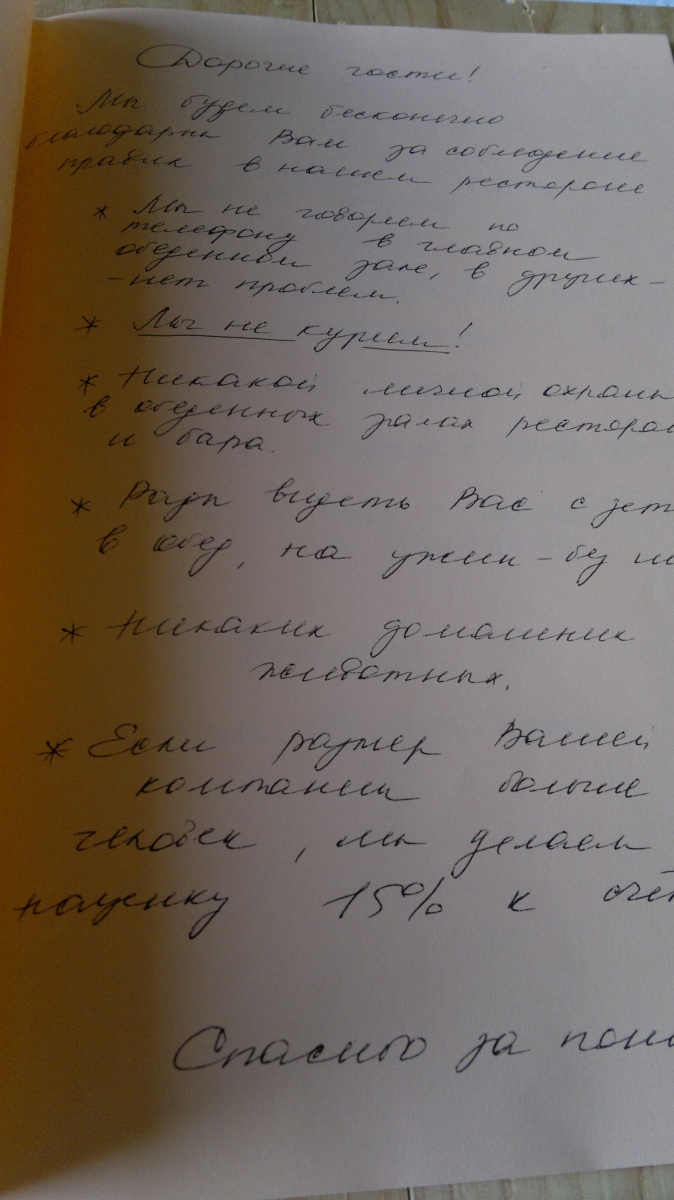 Дорогие гости!
Мы будем бесконечно
благодарны Вам за соблюдение
правил в нашем ресторане
* Мы не говорим по
телефону в главном
обеденном зале, в других -
- нет проблем.
* Мы не курим!
* Никакой личной охраны
в обеденных залах
и бара.
* Рады видеть Вас с
в обед, на ужин - без
* Никаких домашних
животных.
* Если размер Вашей
компании больше
человек, мы делаем
наценку 15% к
Спасибо за